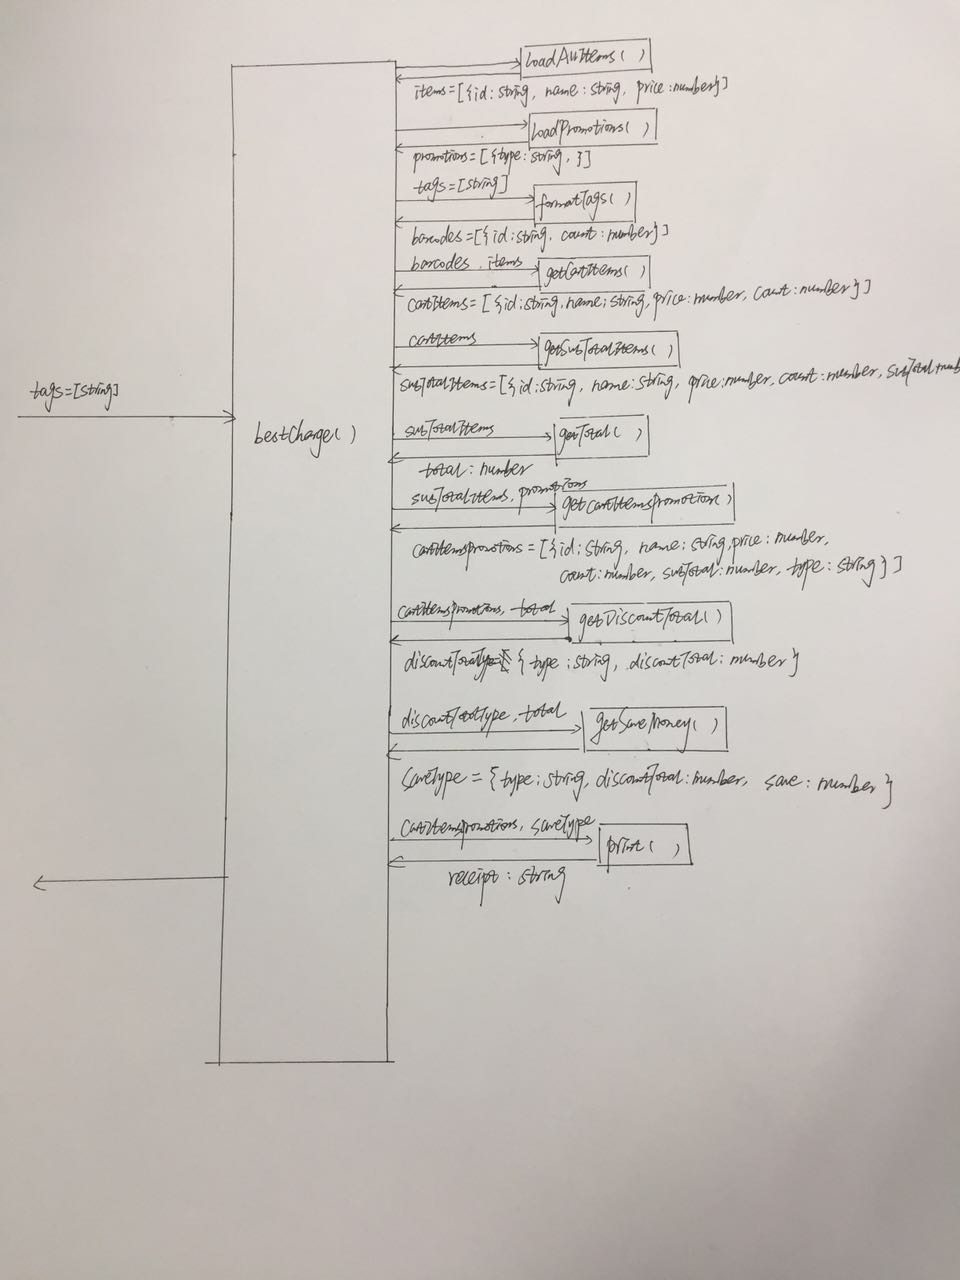 loadAllItems( )
items=[{id:string, name:string, price:number}]
loadPromotions( )
promotions=[{type:string, }]
tags=[string]
formatTags( )
barcodes=[{id:string, count:number}]
barcodes, items
getCartItems( )
cartItems=[{id:string,name:string,price:number, count:number}]
cartItems
getSubTotalItems( )
subTotalItems=[{id:string, name:string, price:number, count:number, subTotal:numb
tags=[string]
bestCharge( )
subTotalItems
getTotal( )
total:number
subTotalItems, promotions
getCartItemsPromotion( )
cartItemsPromotions=[{id:string, name:string,price:number,
count:number, subTotal:number, type:string}]
cartItemsPromotions, total
getDiscountTotal( )
discountTotalType={type:string, discountTotal:number}
discountTotalType, total
getSaveMoney( )
saveType={type:string, discountTotal:number, save:number}
cartItemsPromotions, saveType
print( )
receipt:string